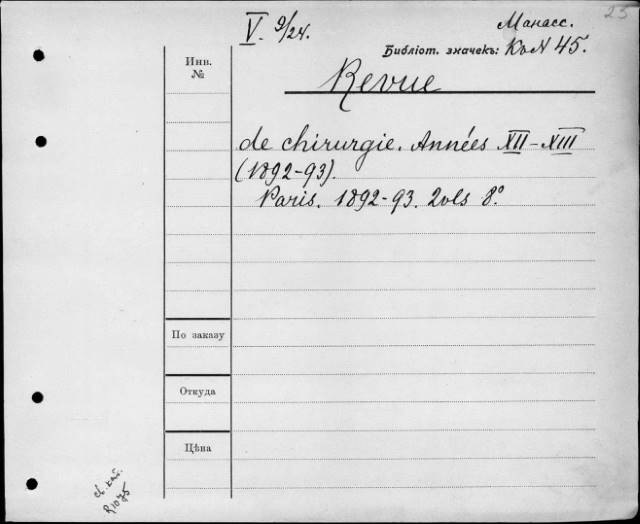 25
V. 9/24.
Манасс.
Библіот. значекъ: К. N 45.
Инв.
№
Revue
de chirurgie. Années XII-XIII
(1892-93).
Paris. 1892-93. 2 vls 8°.
По заказу
Откуда
Цѣна
R1075